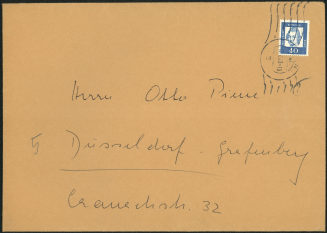 40
Herrn Otto Piene
4 Düsseldorf - Grafenberg
Cranachstr. 32